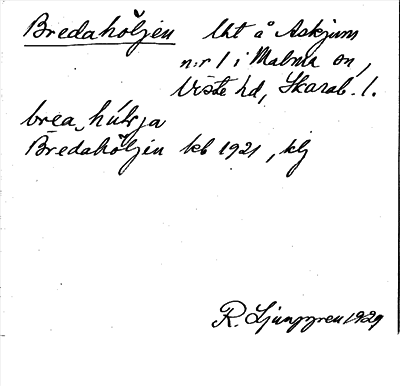 Bredahöljen lht å Askjum
n:r 1 i Malma sn,
Viste hd, Skarab. l.
brea, húlrja
Bredahöljen kb 1921, klj
R. Ljunggren 1929